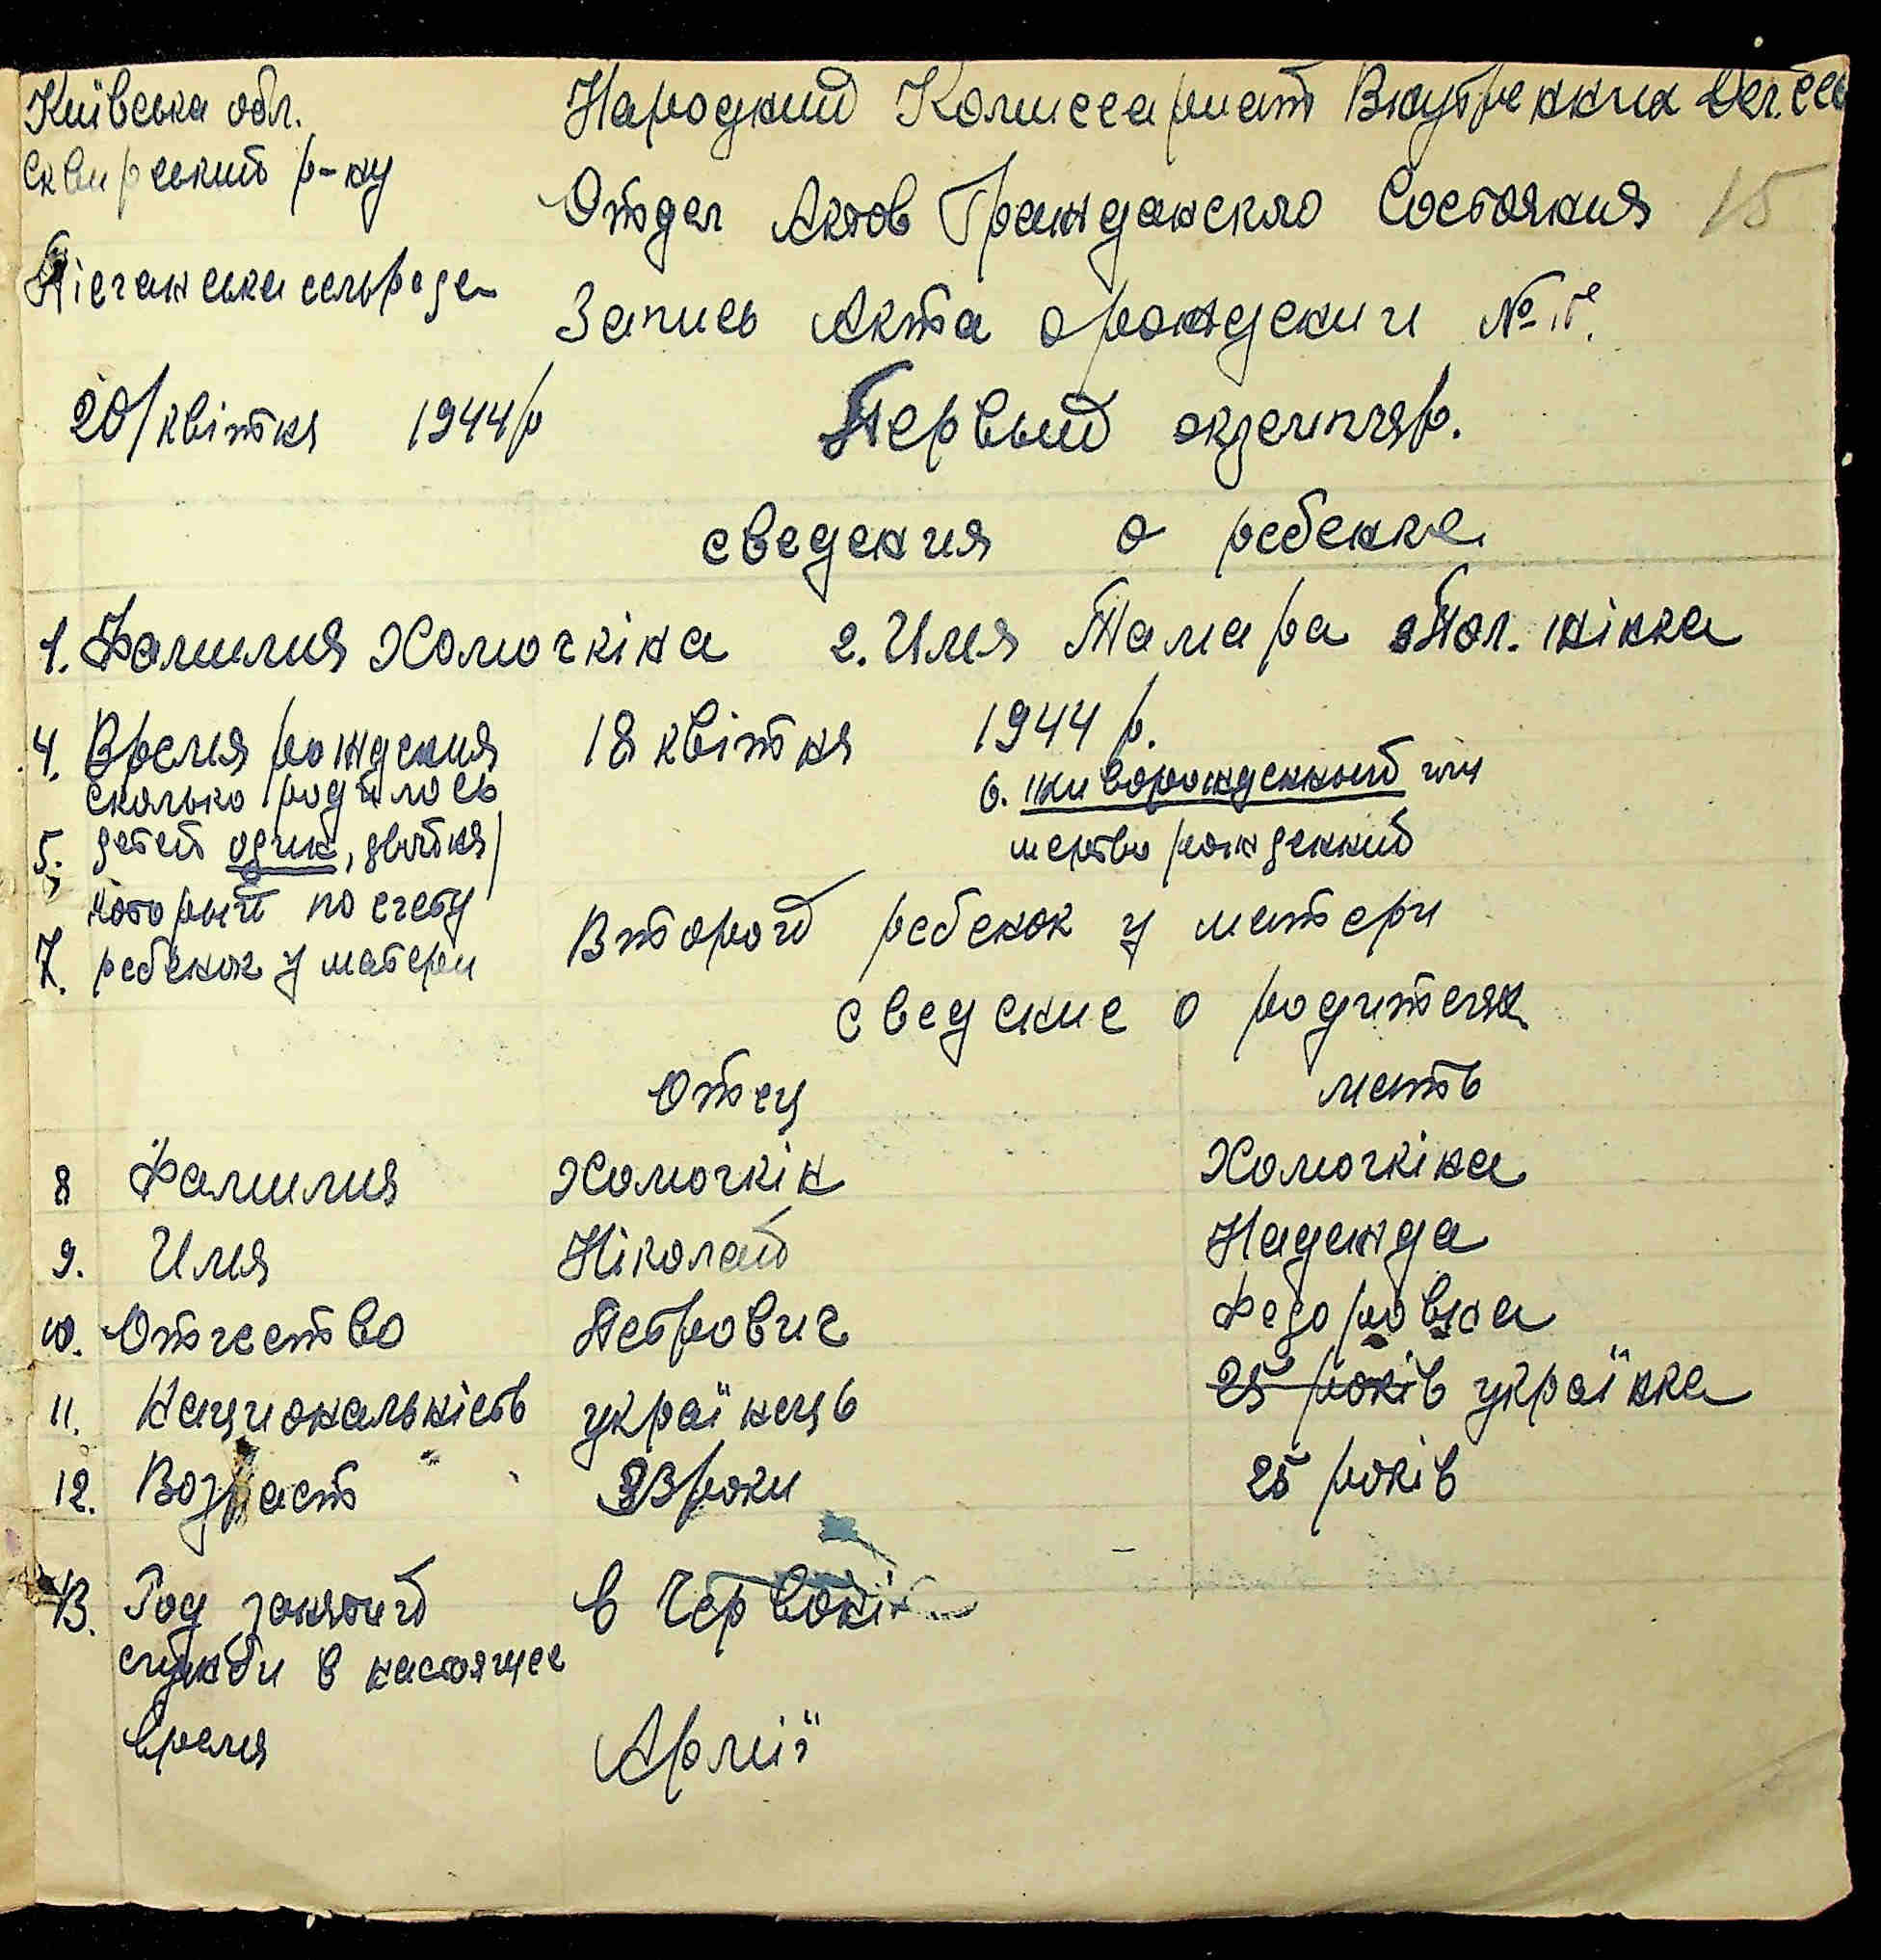 Київська обл.
Сквирський р-ну
Пісчанська сельрада
20/квітня 1944р
Народний Комиссариат Внутренних Дел СССР
15
Отдел Актов Гражданскаго Состояния
Запись Акта о рождении №
Первый экземпляр.
сведения о ребенке
1. Фамилия Хомочкіна 2. Имя Тамара 3 Пол. жінка
4. Время рождения 18 квітня 1944 р.
сколько родилось
5. детей один, двойня,
6. живорожденный или
мертво рожденний
который по счету
7. ребенок у матери Второй ребенок у матери
сведение о родителях
Отец мать
8 Фамилия Хомочкін Хомочкіна
9. Имя Ніколай Надежда
10. Отчество Петрович Федоровна
11. Национальність українець 25 років українка
12. Возраст 33 роки 25 років
13. Род занятий в Червоній
служби в настоящее
время Армії